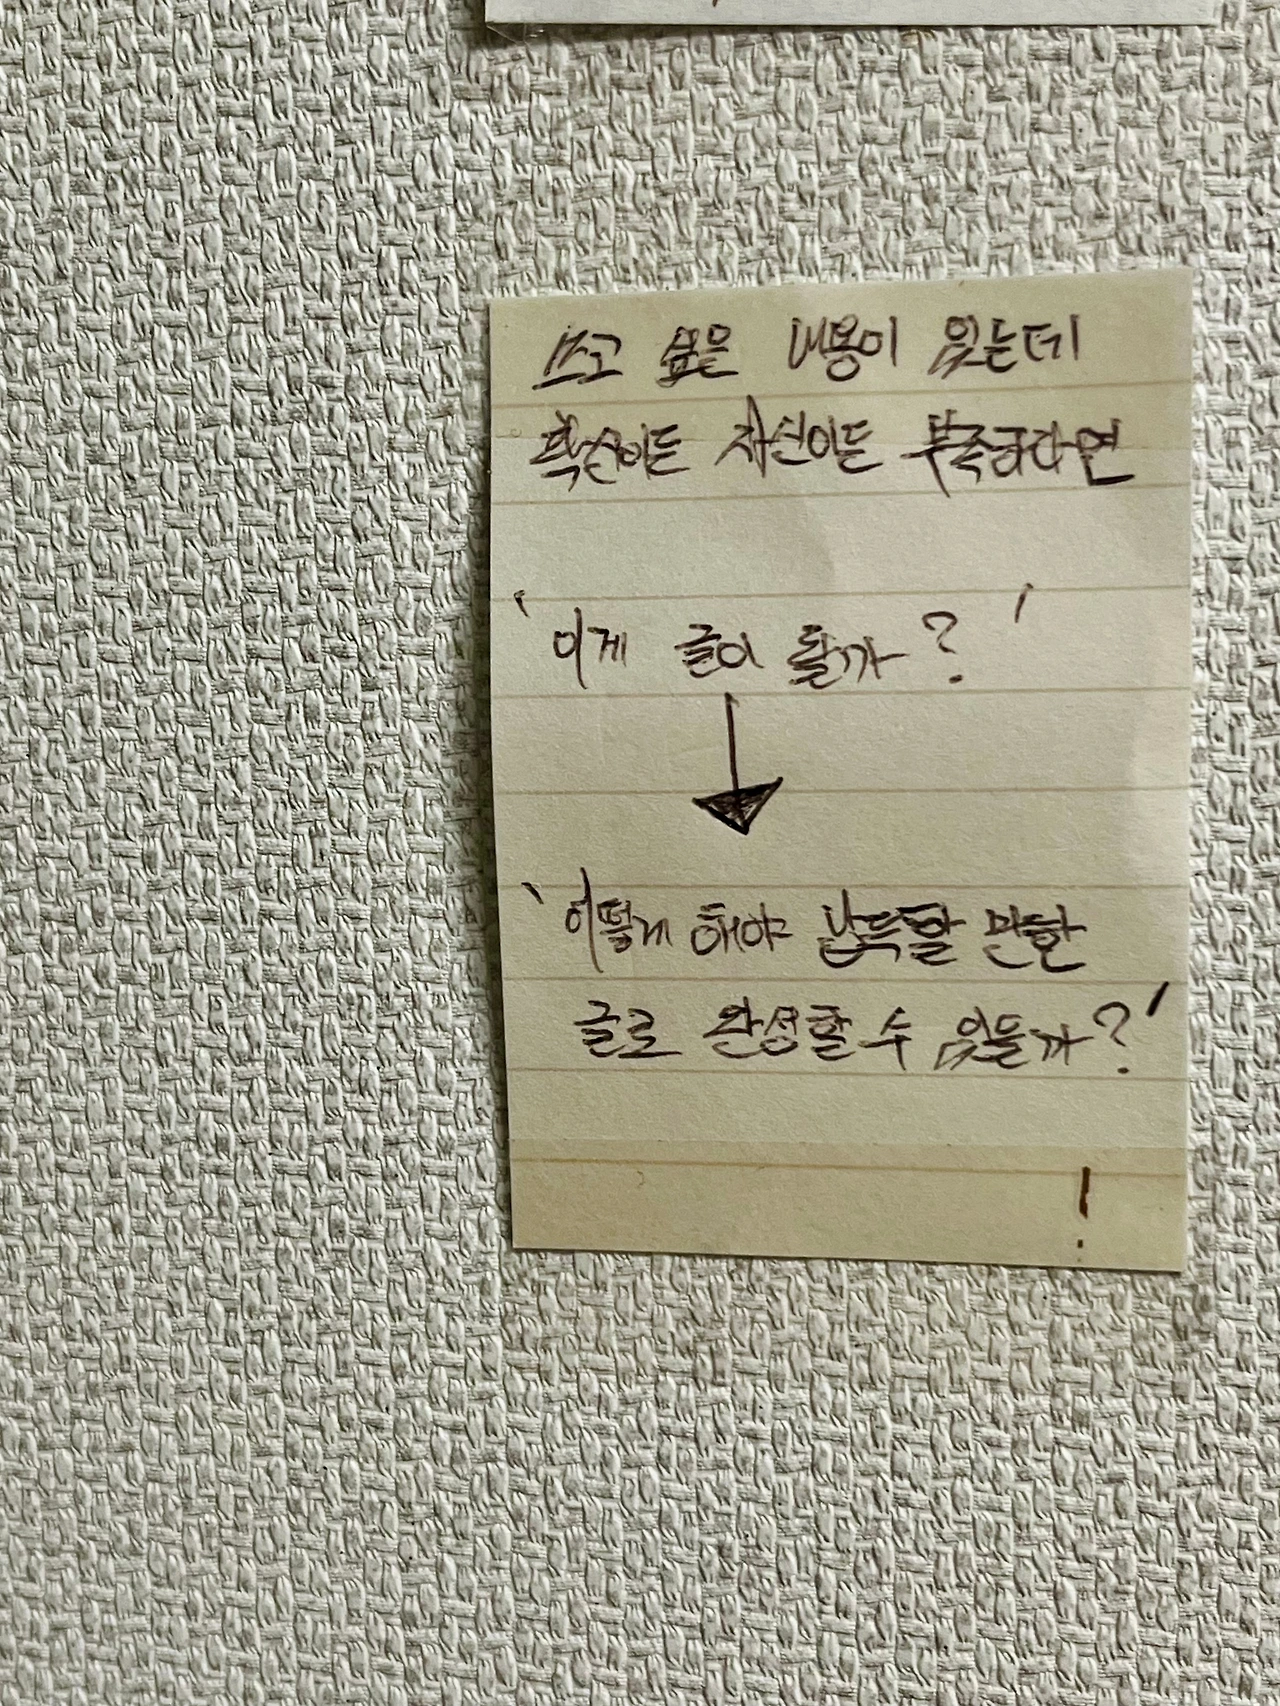 쓰고 싶은 내용이 있는데
확신이든 자신이든 부족하다면
'이게 글이 될까?'
'어떻게 해야 납득할 만한
글로 완성할 수 있을까?'
!